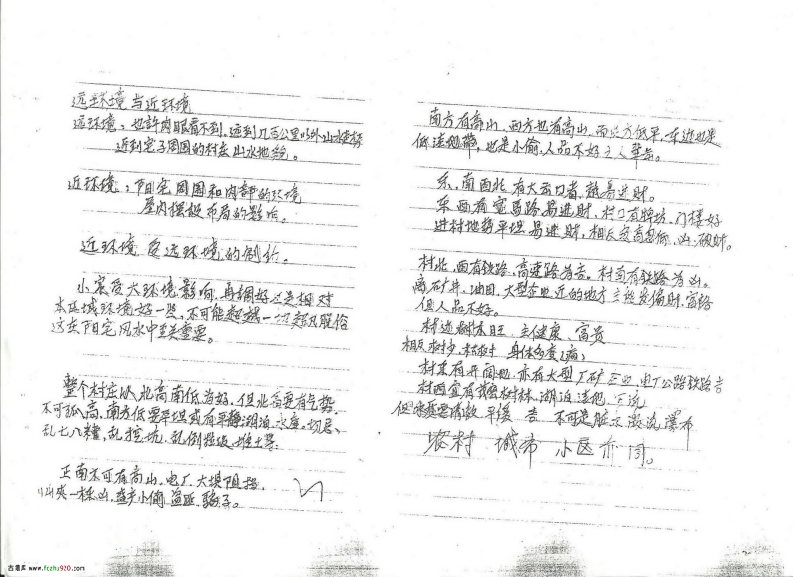 远环境与近环境
远环境：也许肉眼看不到。远到几百公里以外山水
近到宅子周围的村庄山水地貌。
近环境：阳宅周围和内部的环境
屋内摆设布局的影响。
近环境受远环境的制约。
小家受大环境影响，再调好也是相对
本区域环境好一些，不可能超越一切
这在阳宅风水中至关重要。
整个村庄以北高南低为好，但北高要有气势，
不可孤高，南方低要平坦或有平静湖泊水库，切忌
乱七八糟，乱挖坑，乱倒垃圾，堆土
正南不可有高山，电厂，大坝阻挡，
一样凶，小偷，盗匪，骗子。
南方有高山，西方也有高山，而北方低平，东边也是
低洼地带，也是小偷，人品不好之人
东，南西北有大者，易进财。
东西有宽马路易进财，村口有牌坊，门楼好
进村地势平坦易进财，相反凶，破财。
村北，西有铁路，高速路为吉。村南有铁路为凶。
离矿井，油田，大型企业近的地方主发偏财，富裕
但人品不好。
村边树木旺，主健康，富贵
相反树少，枯树身体多病
村东有开阔地，亦有大型厂矿企业，电厂公路铁路吉
村西宜有树林，湖泊
但要平缓吉，不可是激流瀑布
农村城市小区亦同。
古籍库 www.fczhu920.com